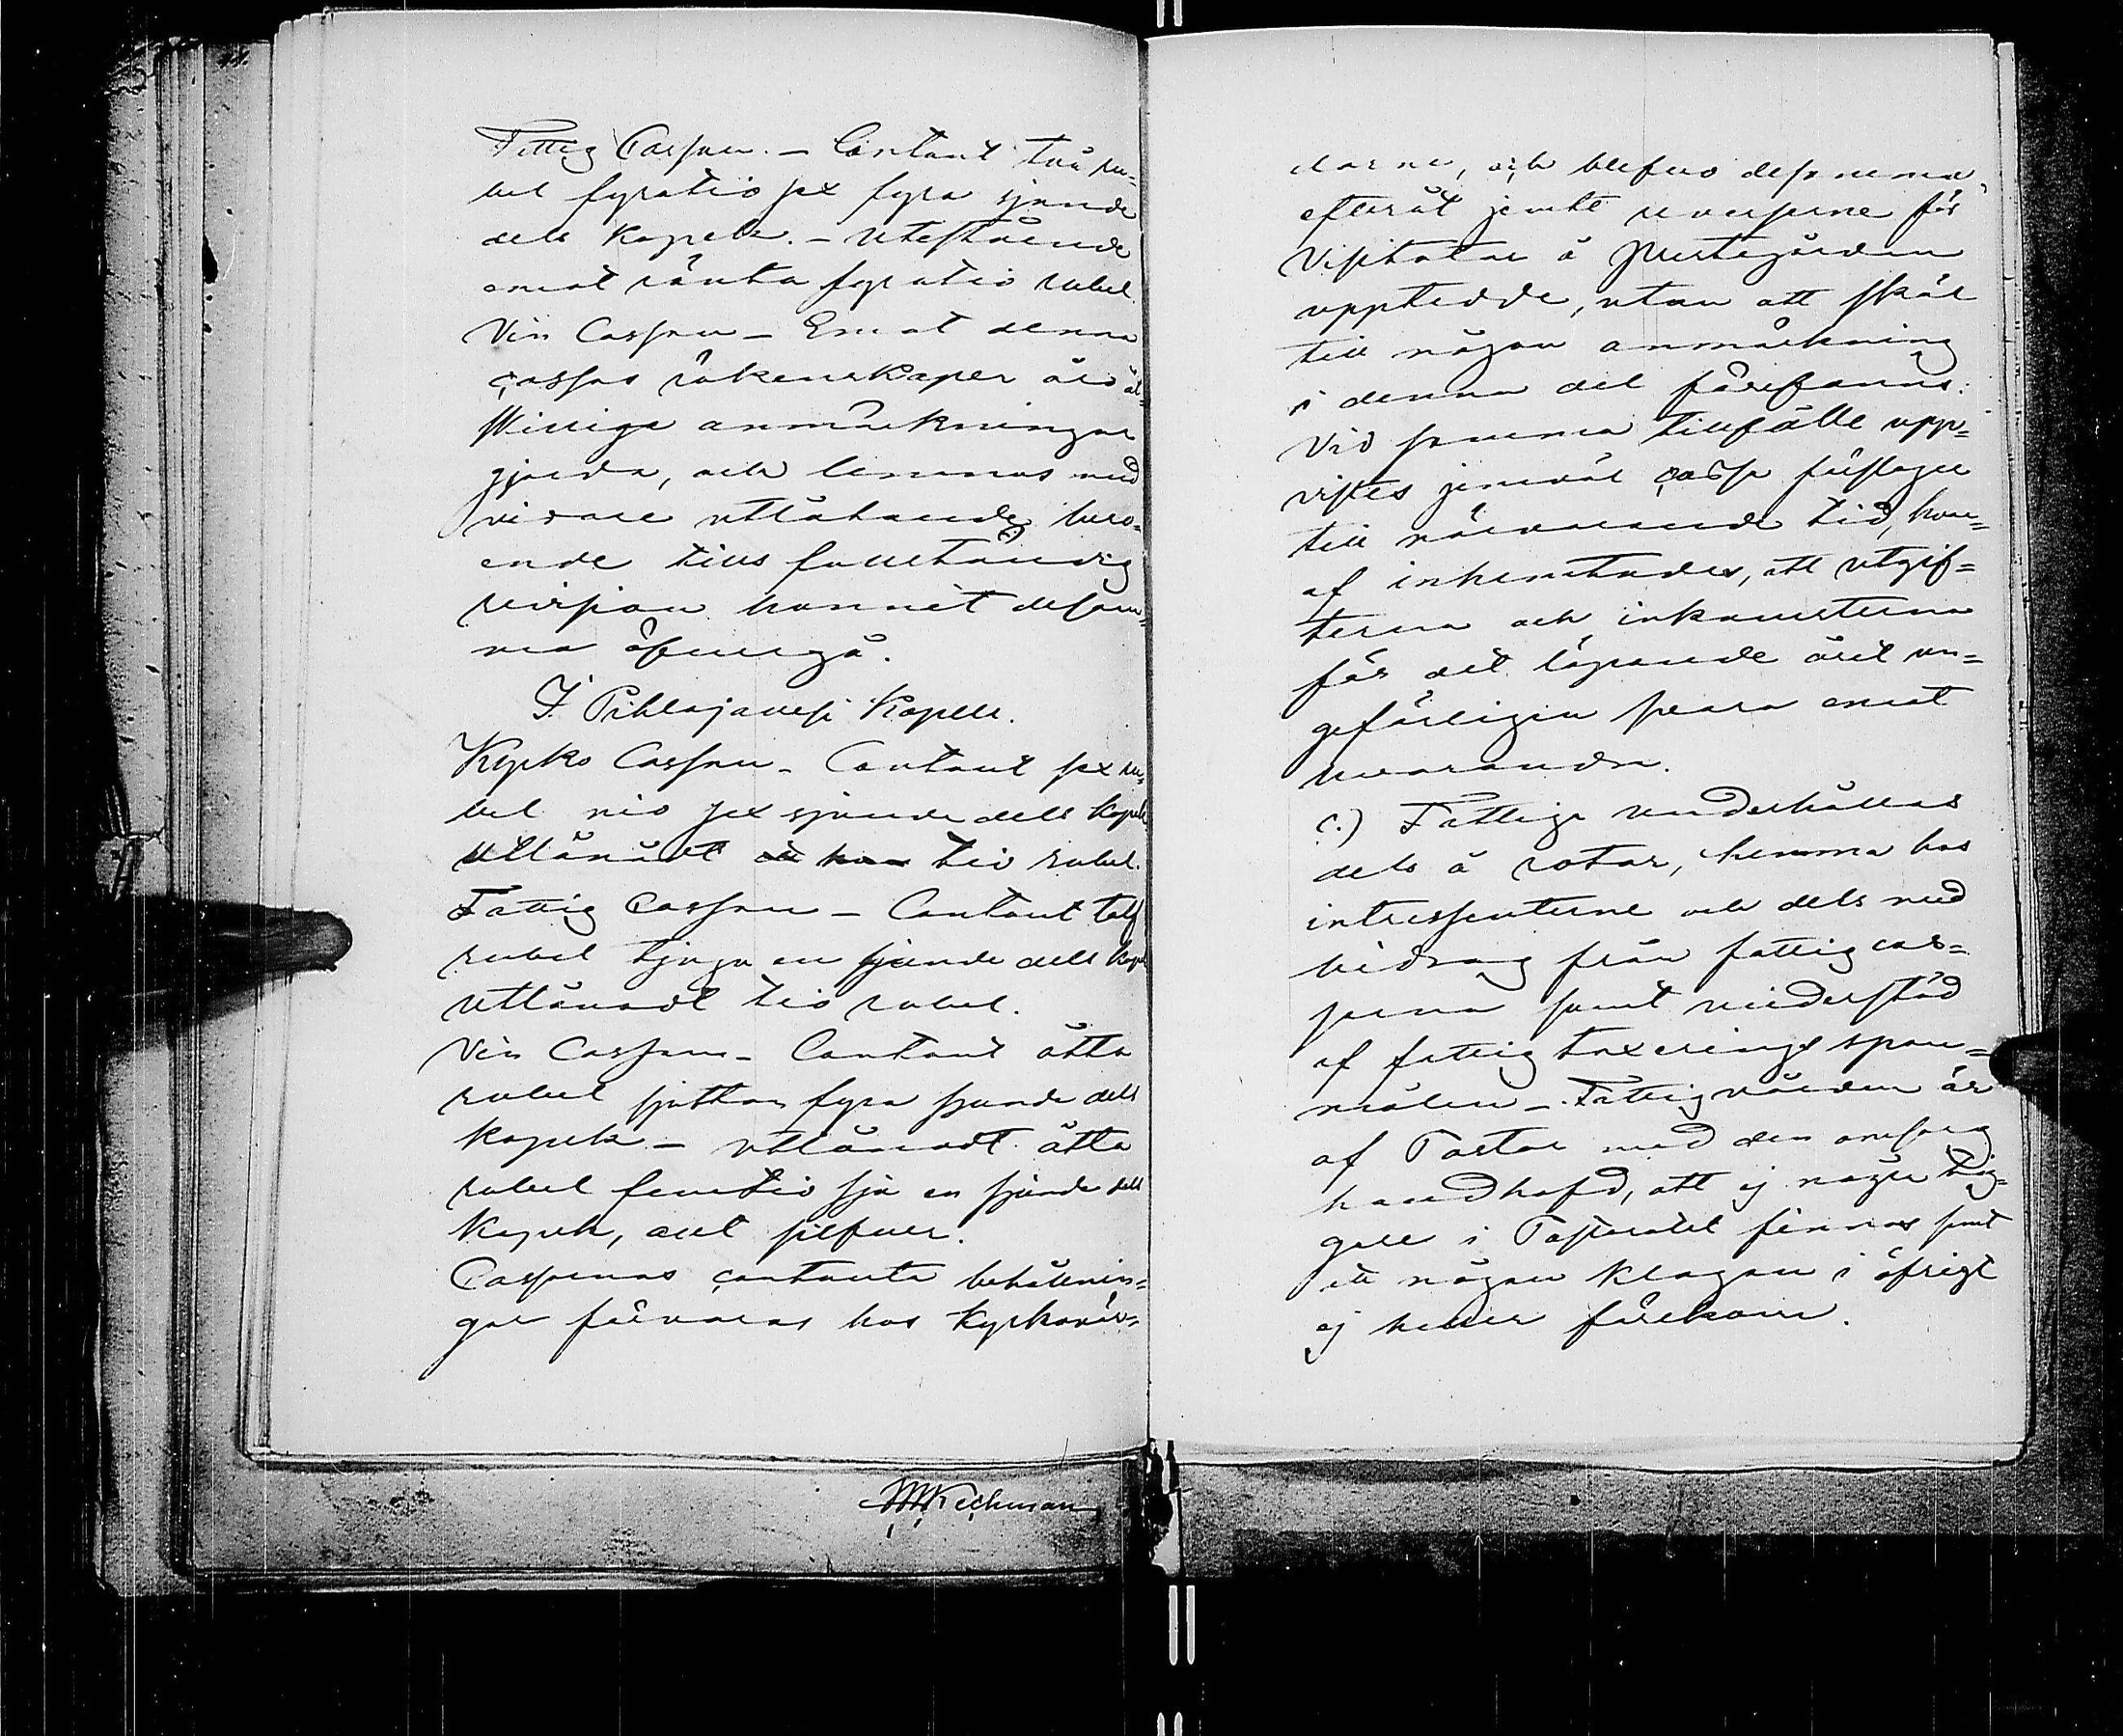 Fattig Cassan. – Contant två ru-
bel fyratio sex fyra sjunde
dels kopek. – Utestående
emot ränta fyratio rubel.
Vin Cassan – Emot denna
cassas räkenskaper äro åt-
skilliga anmärkningar
gjorda, och lemnas med
vidare utlåtande bero-
ende tills fullständig
revision hunnit desam-
ma öfvergå.
I Pihlajavesi Kapell.
Kyrko Cassan – Contant sex ru-
bel nio sex sjunde dels kopek
Utlånadt tio rubel.
Fattig Cassan – Contant tolf
rubel tjugu en sjunde dels kopek
utlånadt tio rubel.
Vin Cassan – Contant åtta
rubel sjutton fyra sjunde dels
kopek – utlånadt åtta
rubel femtio sju en sjunde dels
kopek, allt silfver.
Cassornas contanta behållnin-
gar förvaras hos Kyrkovär-
darne, och blefvo desamma
efteråt jemte reverserne för
Visitator å Prestegården
uppteddde, utan att skäl
till någon anmärkning
i denna del förefanns.
Vid samma tillfälle upp-
vistes jemväl cassa förslager
till närvarande tid, hvar-
af inhemtades, att utgif-
terna och inkomsterna
för det löpande året un-
gefärligen svara emot
hvarandra.
c.) Fattige underhållas
dels å rotar, hemma hos
intressenterne och dels med
bidrag från fattig cas-
sorna samt understöd
af fattig taxerings span-
målen – Fattigvården är
af Pastor med den omsorg
handhafd, att ej någre tig-
gare i Pastoratet finnas samt
att någon klagan i öfrigt
ej heller förekom.